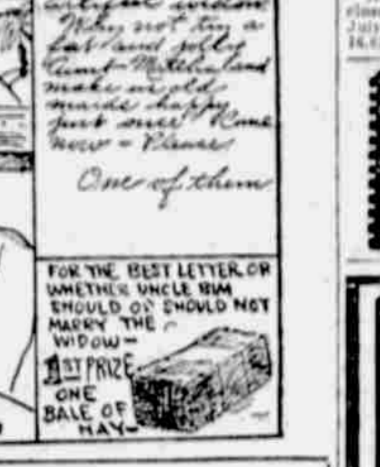 artful widow
Why not try a
fat and jolly
Aunt
make us old
maids happy
just once Come
now - Please
One of them
FOR THE BEST LETTER OR
WHETHER UNCLE BIM
SHOULD OR SHOULD NOT
MARRY THE
WIDOW-
1ST PRIZE
ONE
BALE OF
HAY-